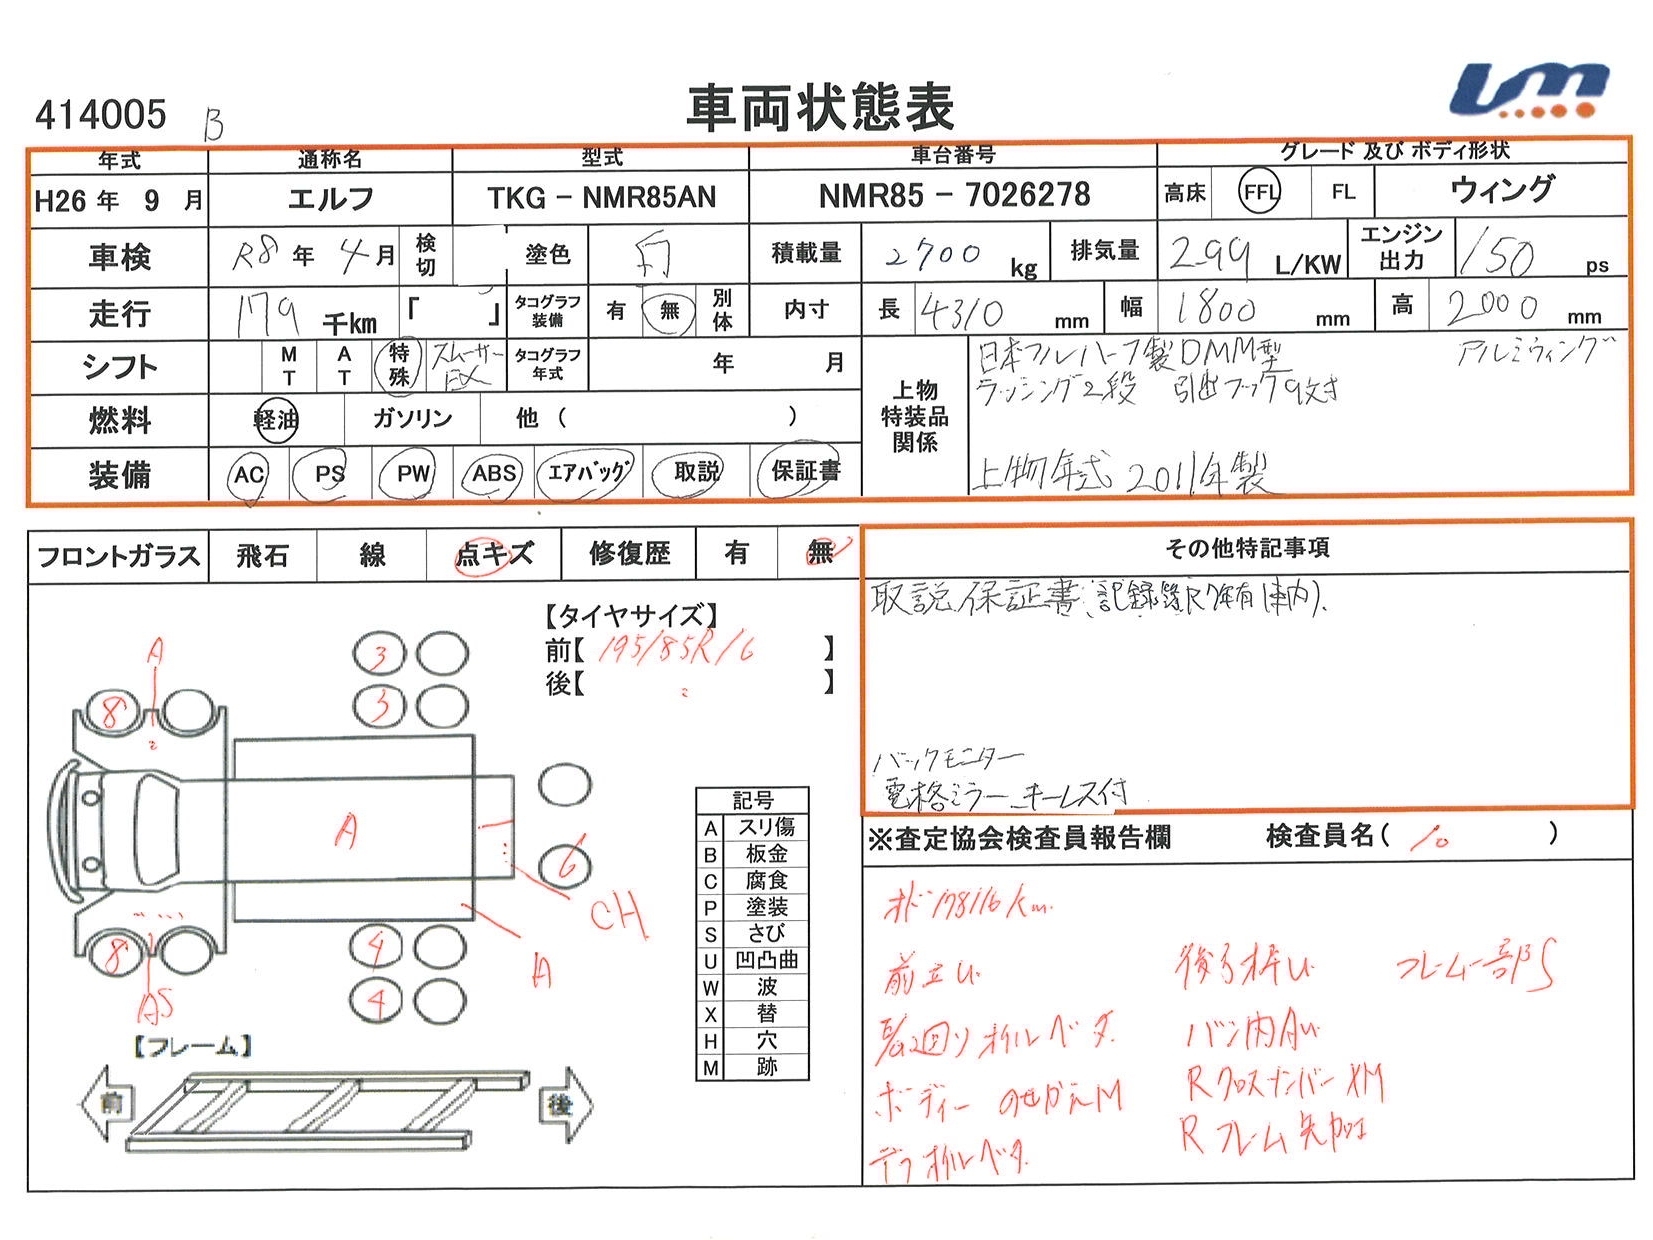 414005 B
車両状態表
年式 通称名 型式 車台番号 グレード 及び ボディ形状
H26 年 9 月 エルフ TKG − NMR85AN NMR85 − 7026278 高床 FFL FL ウィング
車検 R8 年 4 月 検切 塗色 白 積載量 2700 kg 排気量 2.99 L/KW エンジン出力 150 ps
走行 179 千km 「 」 タコグラフ装備 有 無 別体 内寸 長 4310 mm 幅 1800 mm 高 2000 mm
シフト MT AT 特殊 スムーサーEX タコグラフ年式 年 月 上物特装品関係 日本フルハーフ製DMM型 アルミウィング
ラッシング2段 引出フック9対付
燃料 軽油 ガソリン 他 ( )
装備 AC PS PW ABS エアバッグ 取説 保証書 上物年式 2011年製
フロントガラス 飛石 線 点キズ 修復歴 有 無 その他特記事項
取説 保証書 記録簿R7年有(車内).
【タイヤサイズ】
前【 195/85R16 】
後【 〃 】
A
3
3
8
〃
バックモニター
電格ミラー キーレス付
A
6
CH
A
4
8
4
AS
記号
A スリ傷
B 板金
C 腐食
P 塗装
S さび
U 凹凸曲
W 波
X 替
H 穴
M 跡
【フレーム】
前 後
※査定協会検査員報告欄 検査員名( 10 )
オド 178116 km.
前立U 後ろ枠U フレーム一部S
オイルベタ. バン内AU
ボディー のせかえM RクロスメンバーXM
デフオイルベタ. Rフレーム先加工